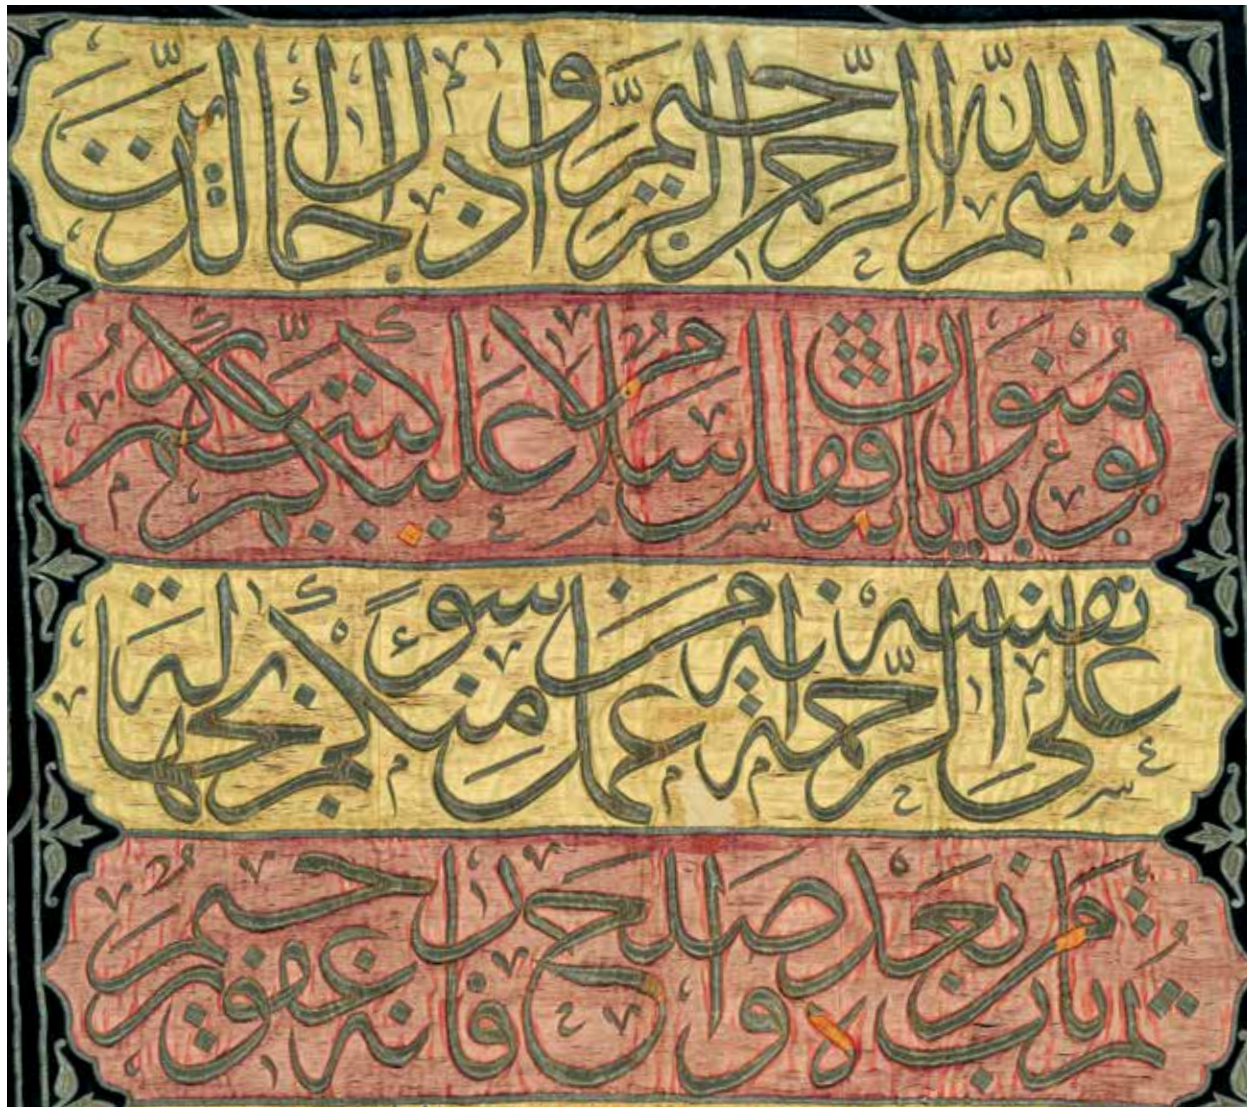 بسم الله الرحمن الرحيم واذا جاءك الذين
يؤمنون باياتنا فقل سلام عليكم كتب ربكم
على نفسه الرحمة انه من عمل منكم سوءا بجهالة
ثم تاب من بعده واصلح فانه غفور رحيم